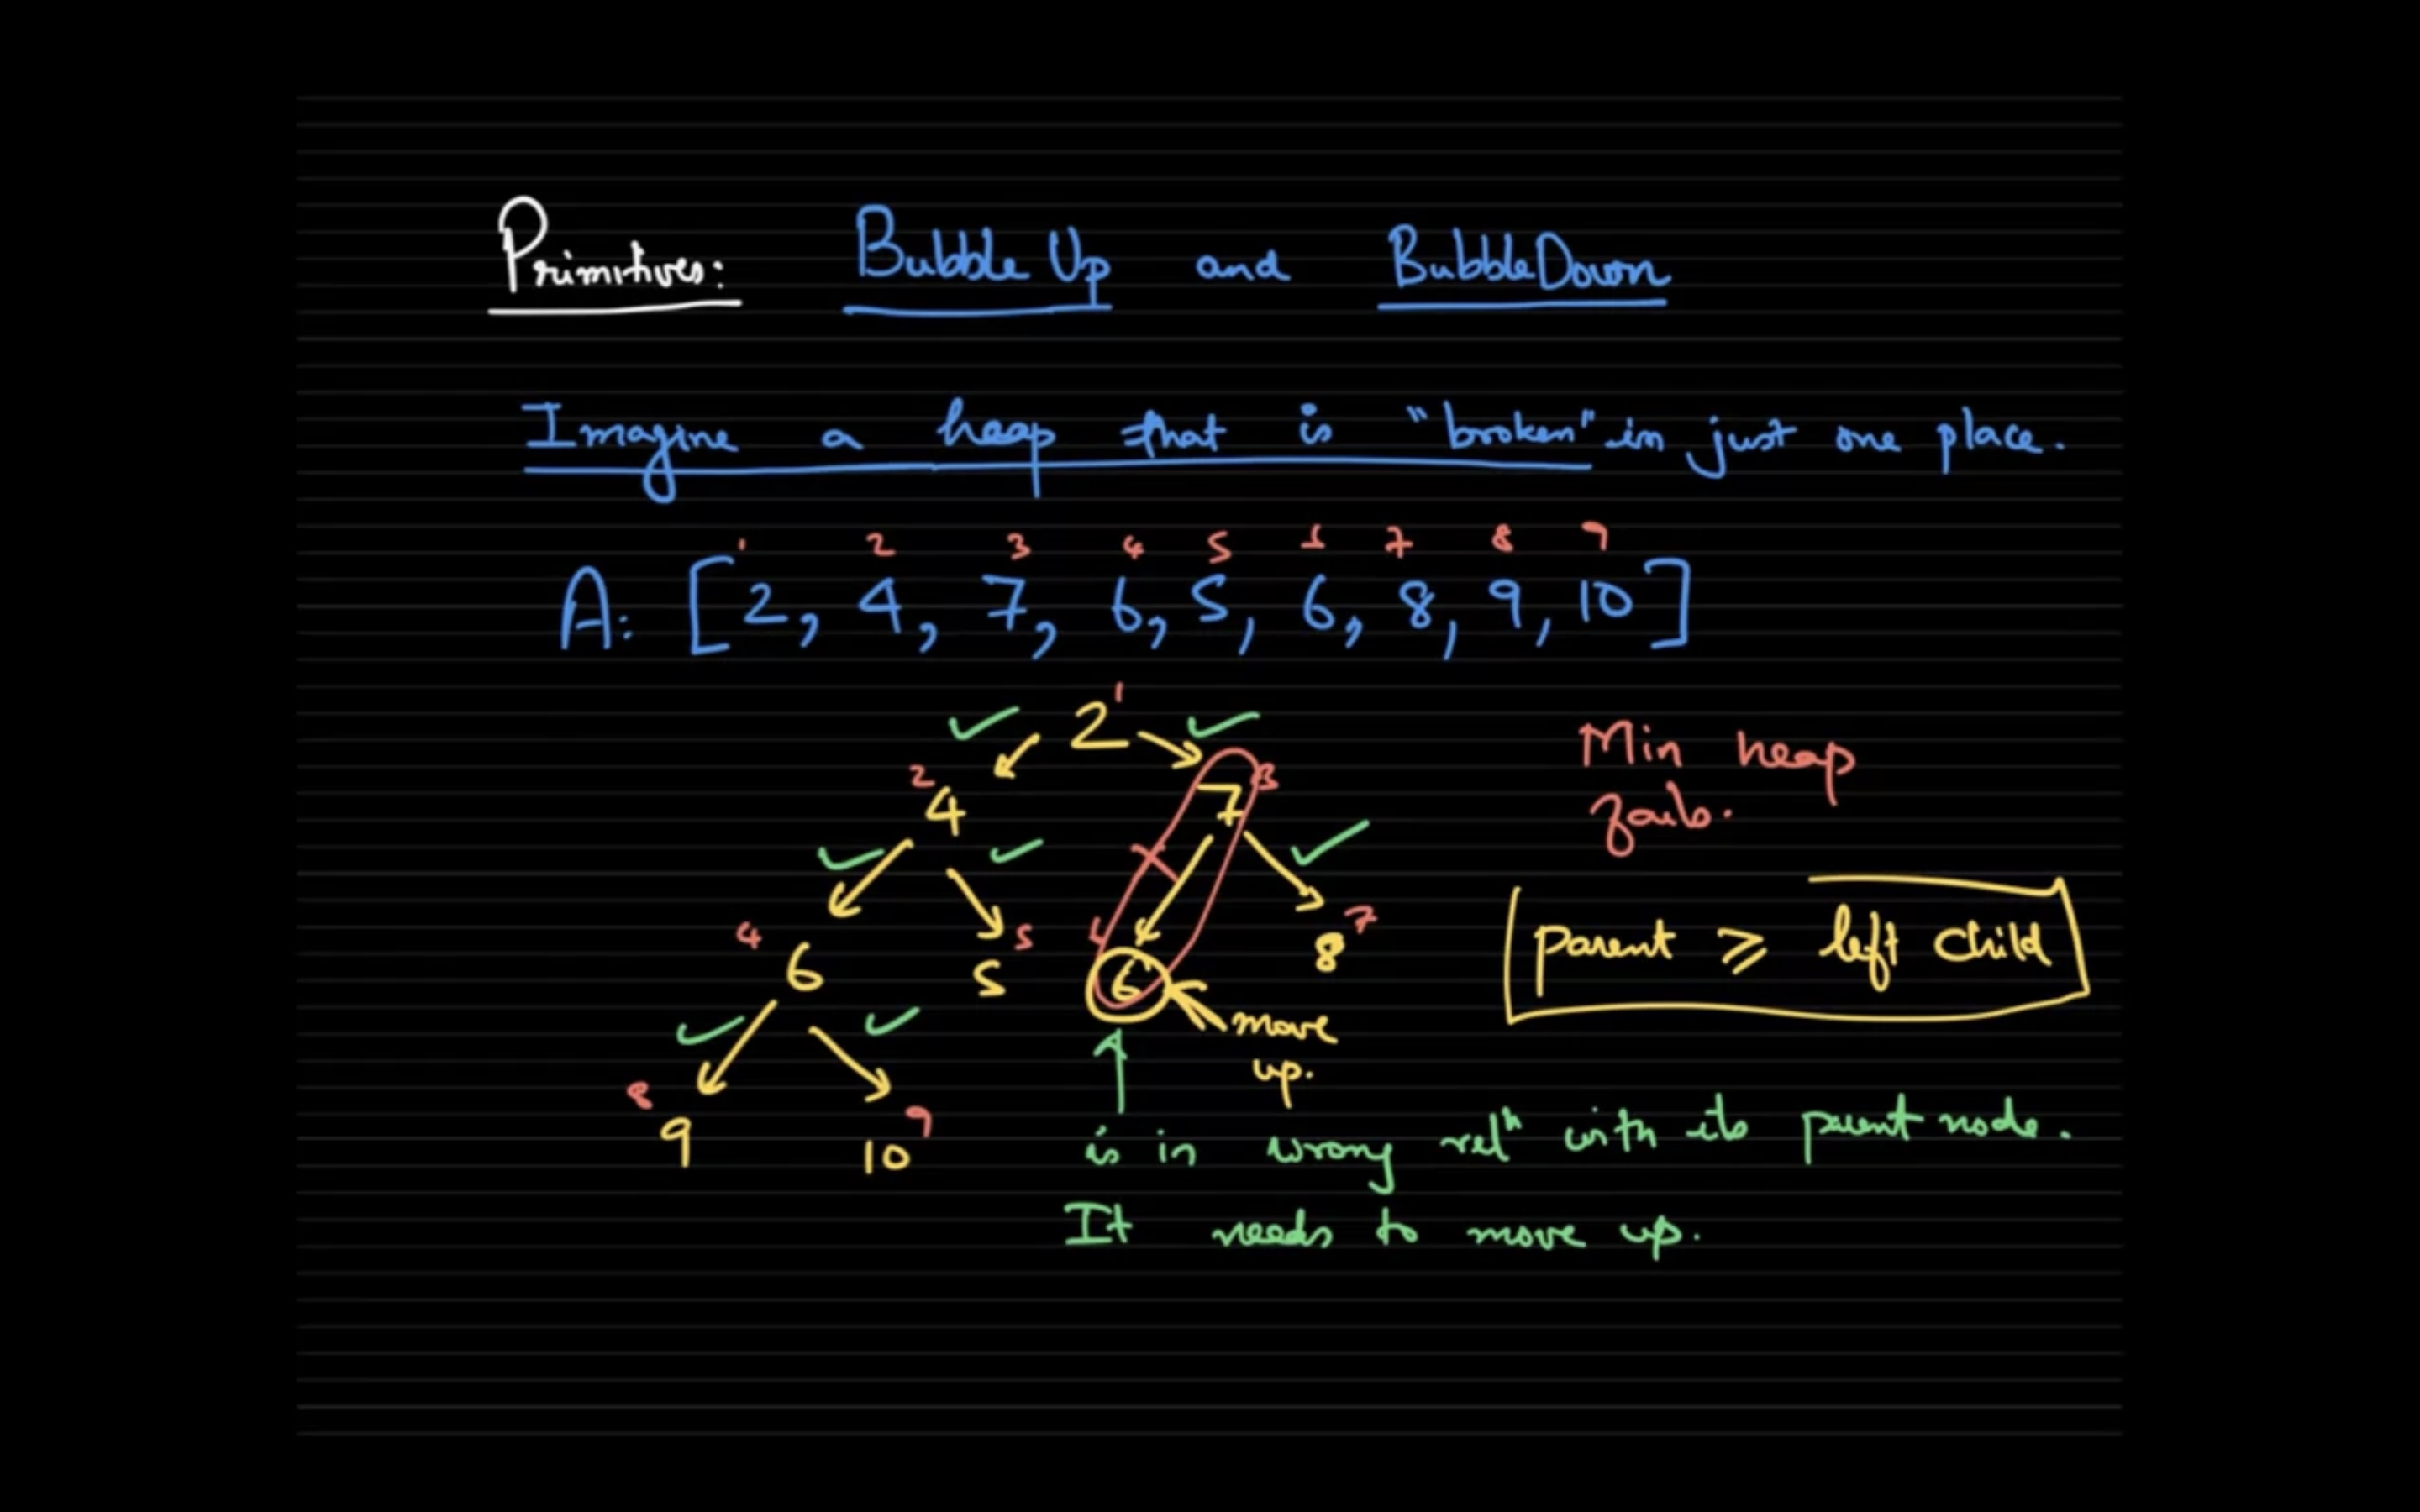 Primitives: Bubble Up and BubbleDown
Imagine a heap that is "broken" in just one place.
1 2 3 4 5 6 7 8 9
A: [2, 4, 7, 6, 5, 6, 8, 9, 10]
2 1
2 4
7 3
Min heap
fails.
4 6
5 5
6 6
8 7
parent ⩾ left child
move
up.
8 9
10 9
is in wrong relⁿ with its parent node.
It needs to move up.